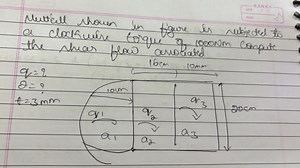 Multicell shown in figure is subjected to
a clockwise torque of 10000Nm compute
the shear flow associated
10cm 10mm
q = ?
θ = ?
t = 3mm
10cm
q1 q2 q3
a1 a2 a3
20cm